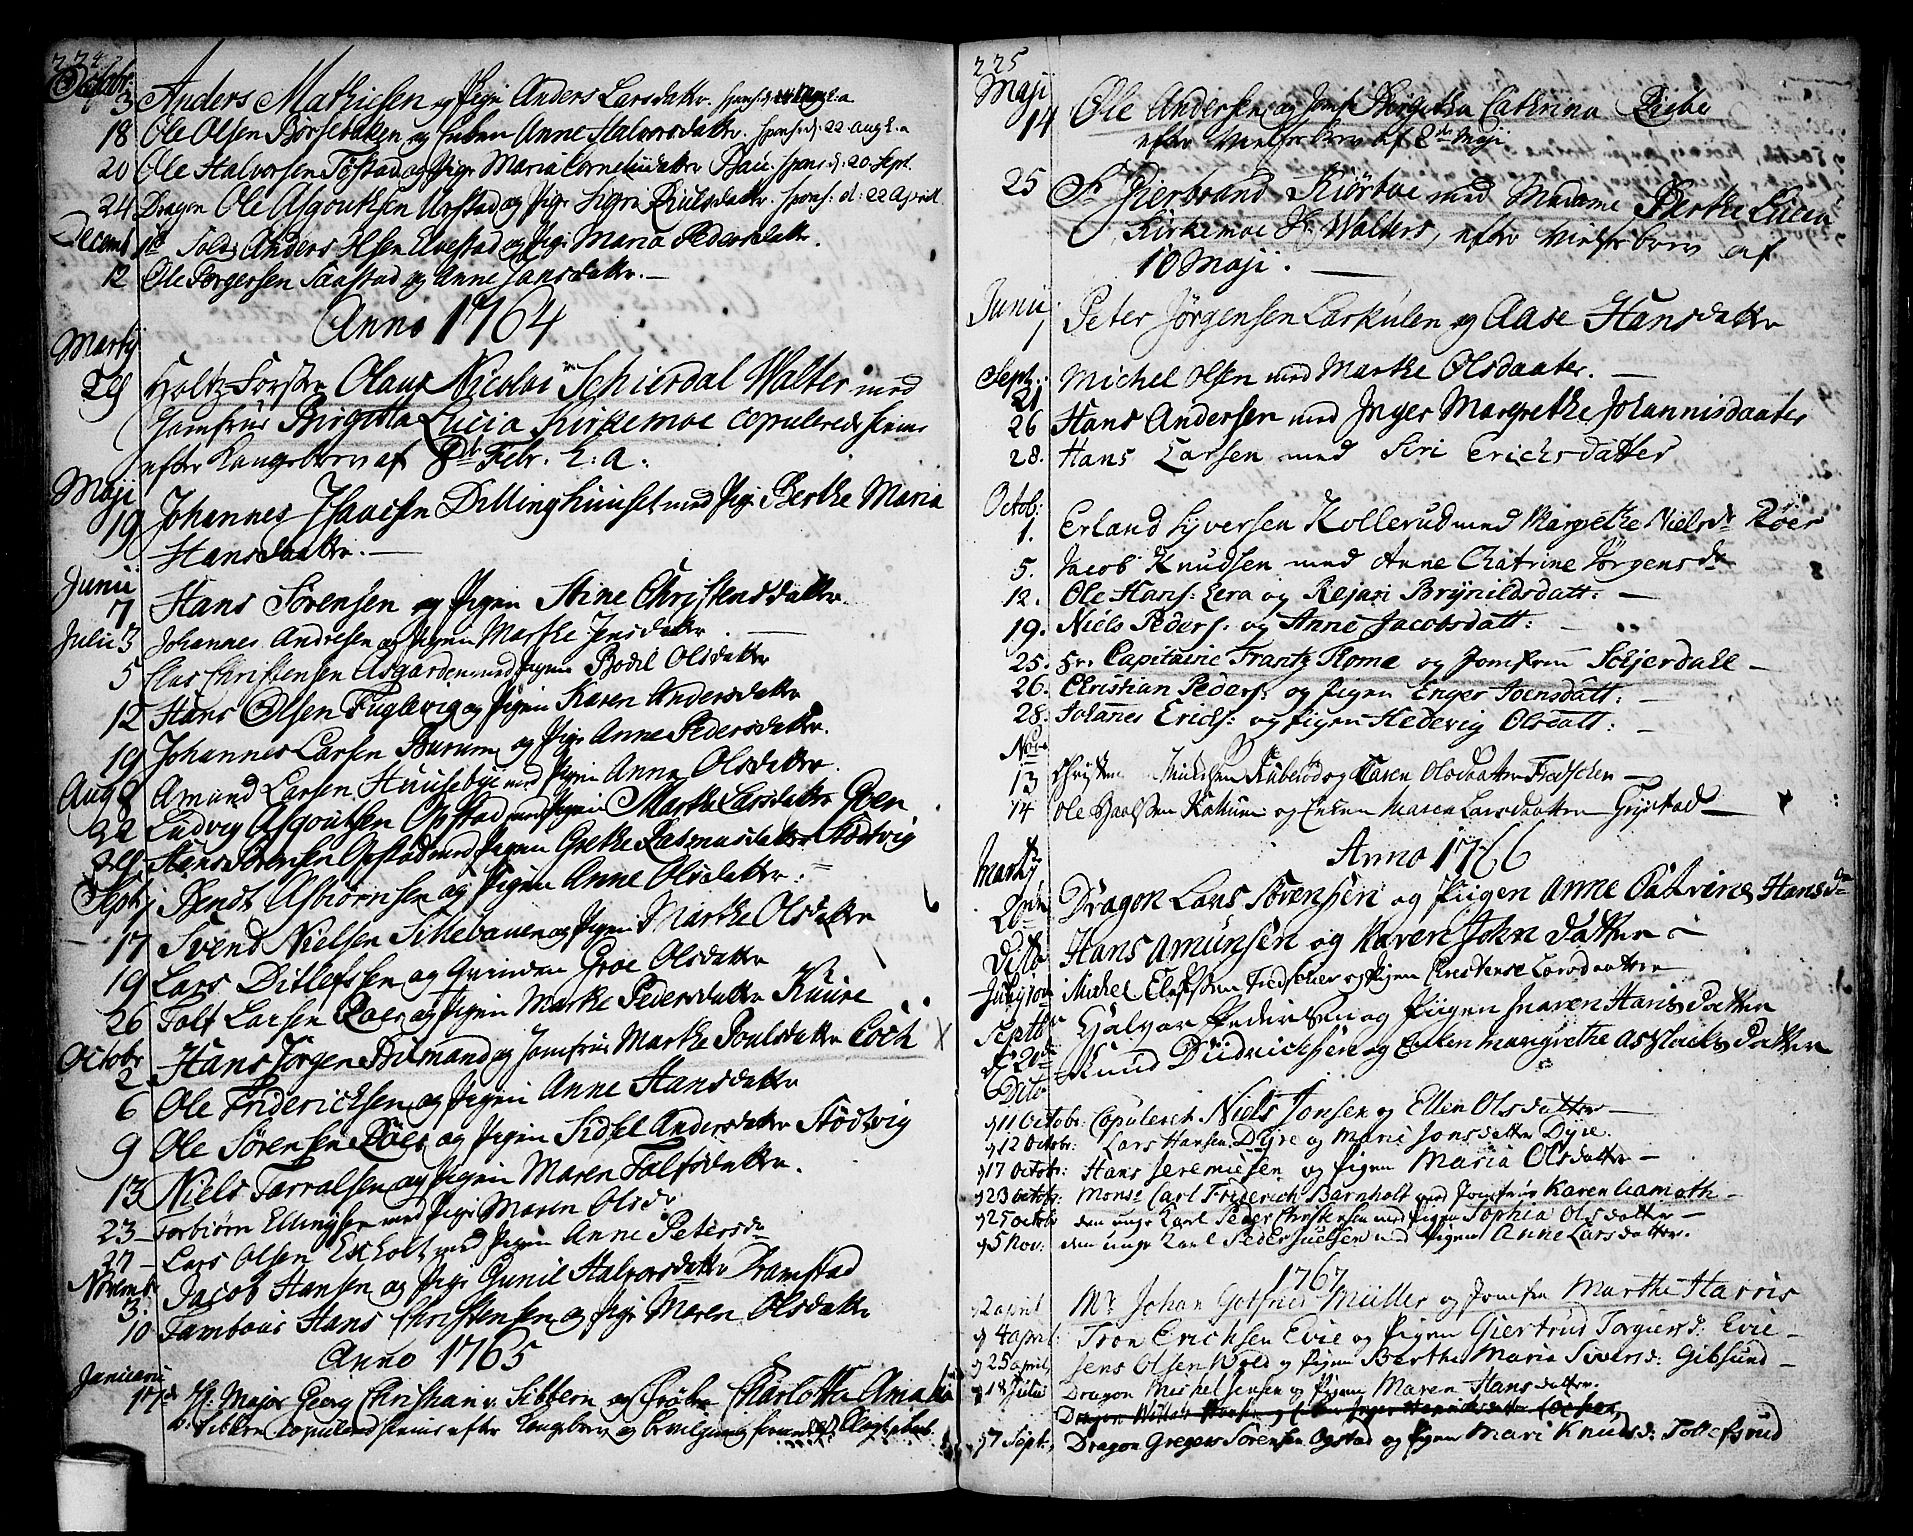 224
Octobr.
3 Anders Mathiesen og Pige Anders Larsdatter.
18 Ole Olsen Børsebaken og Enken Anne Halvorsdatter. spons: d: 22 Aug h.a
20 Ole Halvorsen Tøstad og Pige Maria Corneliidatter spons d: 20. Sept.
24 Dragon Ole Asgoutsen Ørstad og Pige Sigri Poulsdatter. spons: d: 22 April
Decemb. 1te Sold. Anders Olsen Elvestad og Pige Maria Pedersdatter.
12 Ole Børgersen Saastad og Anne Jansdatter.—
Anno 1764
Martij
29 Holtz-Forster Olaus Nicolai Schierdal Walter med
Jomfrue Birgitha Lucia Kirkemoe copulerede
efter Kongebrev af 8de Febr. h: a.
Maji
19 Johannes Isaachsen Dillinghuuset med Pige Berthe Maria
Hansdatter.—
Junii
7 Hans Sørensen og Pigen Stine Christensdatter.
Julii 3 Johannes Andresen og Pigen Marthe Jensdatter
5 Claus Christensen Asgarden med Pigen Bodil Olsdatter
12 Hans Olsen Fuglevig og Pigen Karen Andersdatter
19 Johannes Larsen Burum og Pige Anne Pedersdatter.
Aug 8 Amund Larsen Huusebye med Pigen Anne Olsdatter.
22 Ludvig Asgoutsen Opstad med Pigen Marthe Larsdatter Goen
29 Hans Sørensen Opstad med Pigen Grethe Rasmusdatter Stødtvig
Septbr Bendt Asbiørnsen og Pigen Anne Olsdatter.
17 Svend Nielsen Sillebauen og Pigen Marthe Olsdatter
19 Lars Ditlefssen og Qvinden Groe Olsdatter
26 Tolf Larsen Roer og Pigen Marthe Pedersdatter Kuure
Octobr
2 Hans Jørgen Bilmand og Jomfrue Marthe Poulsdatter Coch
6 Ole Friderichsen og Pigen Anne Hansdatter
9 Ole Sørensen Røer og Pigen Sidsel Andersdatter Stødtvig
13 Niels Tarralsen og Pigen Maren Tolfsdatter.
23 Torbiørn Ellingsen med Pige Maren Olsdr
27 Lars Olsen Exholt med Pigen Anne Petersdr
Novemb.
3. Jacob Hansen og Pige Gunil Halvorsdatter Tramstad
10 Tambour Hans Christensen og Pige Maren Olsdatter
Anno 1765
Januarii
17de Hr. Major Georg Christian v. Sibbern og Frøken Charlotta Amalia
v. Sibbern copulered efter Kongebrev og bevilgning
225
Maji
14 Ole Andersen og Jomfr Birgitha Cathrina
efter Vielsebrev af 2de Maji
25 Sr. Gierbrand Kiørboe med Madame Berthe Lucia
Kirkemoe Sl. Walters, efter Vielsebrev af
10 Maji.—
Junii
1 Peter Jørgensen Larkulen og Aase Hansdatter
Sept.
21 Michel Olsen med Marthe Olsdaater.—
26 Hans Andersen med Inger Margrethe Johannisdaater
28. Hans Larsen med Siri Erichsdatter
Octob:
1. Erland Syversen Kollerud med Margrethe Nielsdr Røer
5. Jacob Knudsen med Anne Chatrine Jørgensdr
12. Ole Hans: Lera og Rejari Brynildsdatt: —
19. Niels Peders: og Anne Jacobsdatt: —
25. Hr. Capitaine Frantz Roma og Jomfru Schjerdall —
26. Christian Peders: og Pigen Enger Joensdatt: —
28. Johannes Erichs: og Pigen Hedevig Olsdatt: —
Novr
13 Christen Knudsen Kuberød og Karen Olsdaatter Fredschen —
14 Ole Kattum og Enken Maren Larsdaatter Grystad —
Anno 1766
Martij
20nde Dragon Lars Sørensen og Piigen Anne Catrine Hansdr
Dito Hans Amundsen og Karen Johndatter —
Michel Elefssen og Pigen Christense Larsdaatter
Septbr Hjalvar Pedersen og Piigen Maren Hansdatter
d 20de Knud Diidrichsen og Enken Margrethe Aslachsdatter
Dito
d 11 Octobr: Copuleret Niels Jonsen og Ellin Olsdatter —
d 12 Octobr: Lars Hansen Dyre og Mari Jonsdatter Dyre.
d 17 Octobr: Hans Jeremiesen og Pigen Maria Olsdatter —
d 23 Octobr: Monsr Carl Friderich Barnholt med Jomfrue Karen Camoth —
d 25 Octobr den unge Karl Peder Christensen med Pigen Sophia Olsdatter —
d 5 Nov: den unge Karl Peder Juelsen med Pigen Anne Larsdatter.
1767
d 2 april Mr. Johan Gotfried Müller og Jomfru Marthe Harris
d 4 april: Tron Erichsen Evie og Pigen Giertrud Torgiersd: Evie —
d 25 april, Jens Olsen Wold og Pigen Berthe Maria Siversd: Gibsund —
d 18 Julii Dragon Michel Jensen og Pigen Maren Hansdatter.
d 7 Sept, Dragon Gregers Sørensen Ogstad og Pigen Mari Knudsd: Tollefsrud